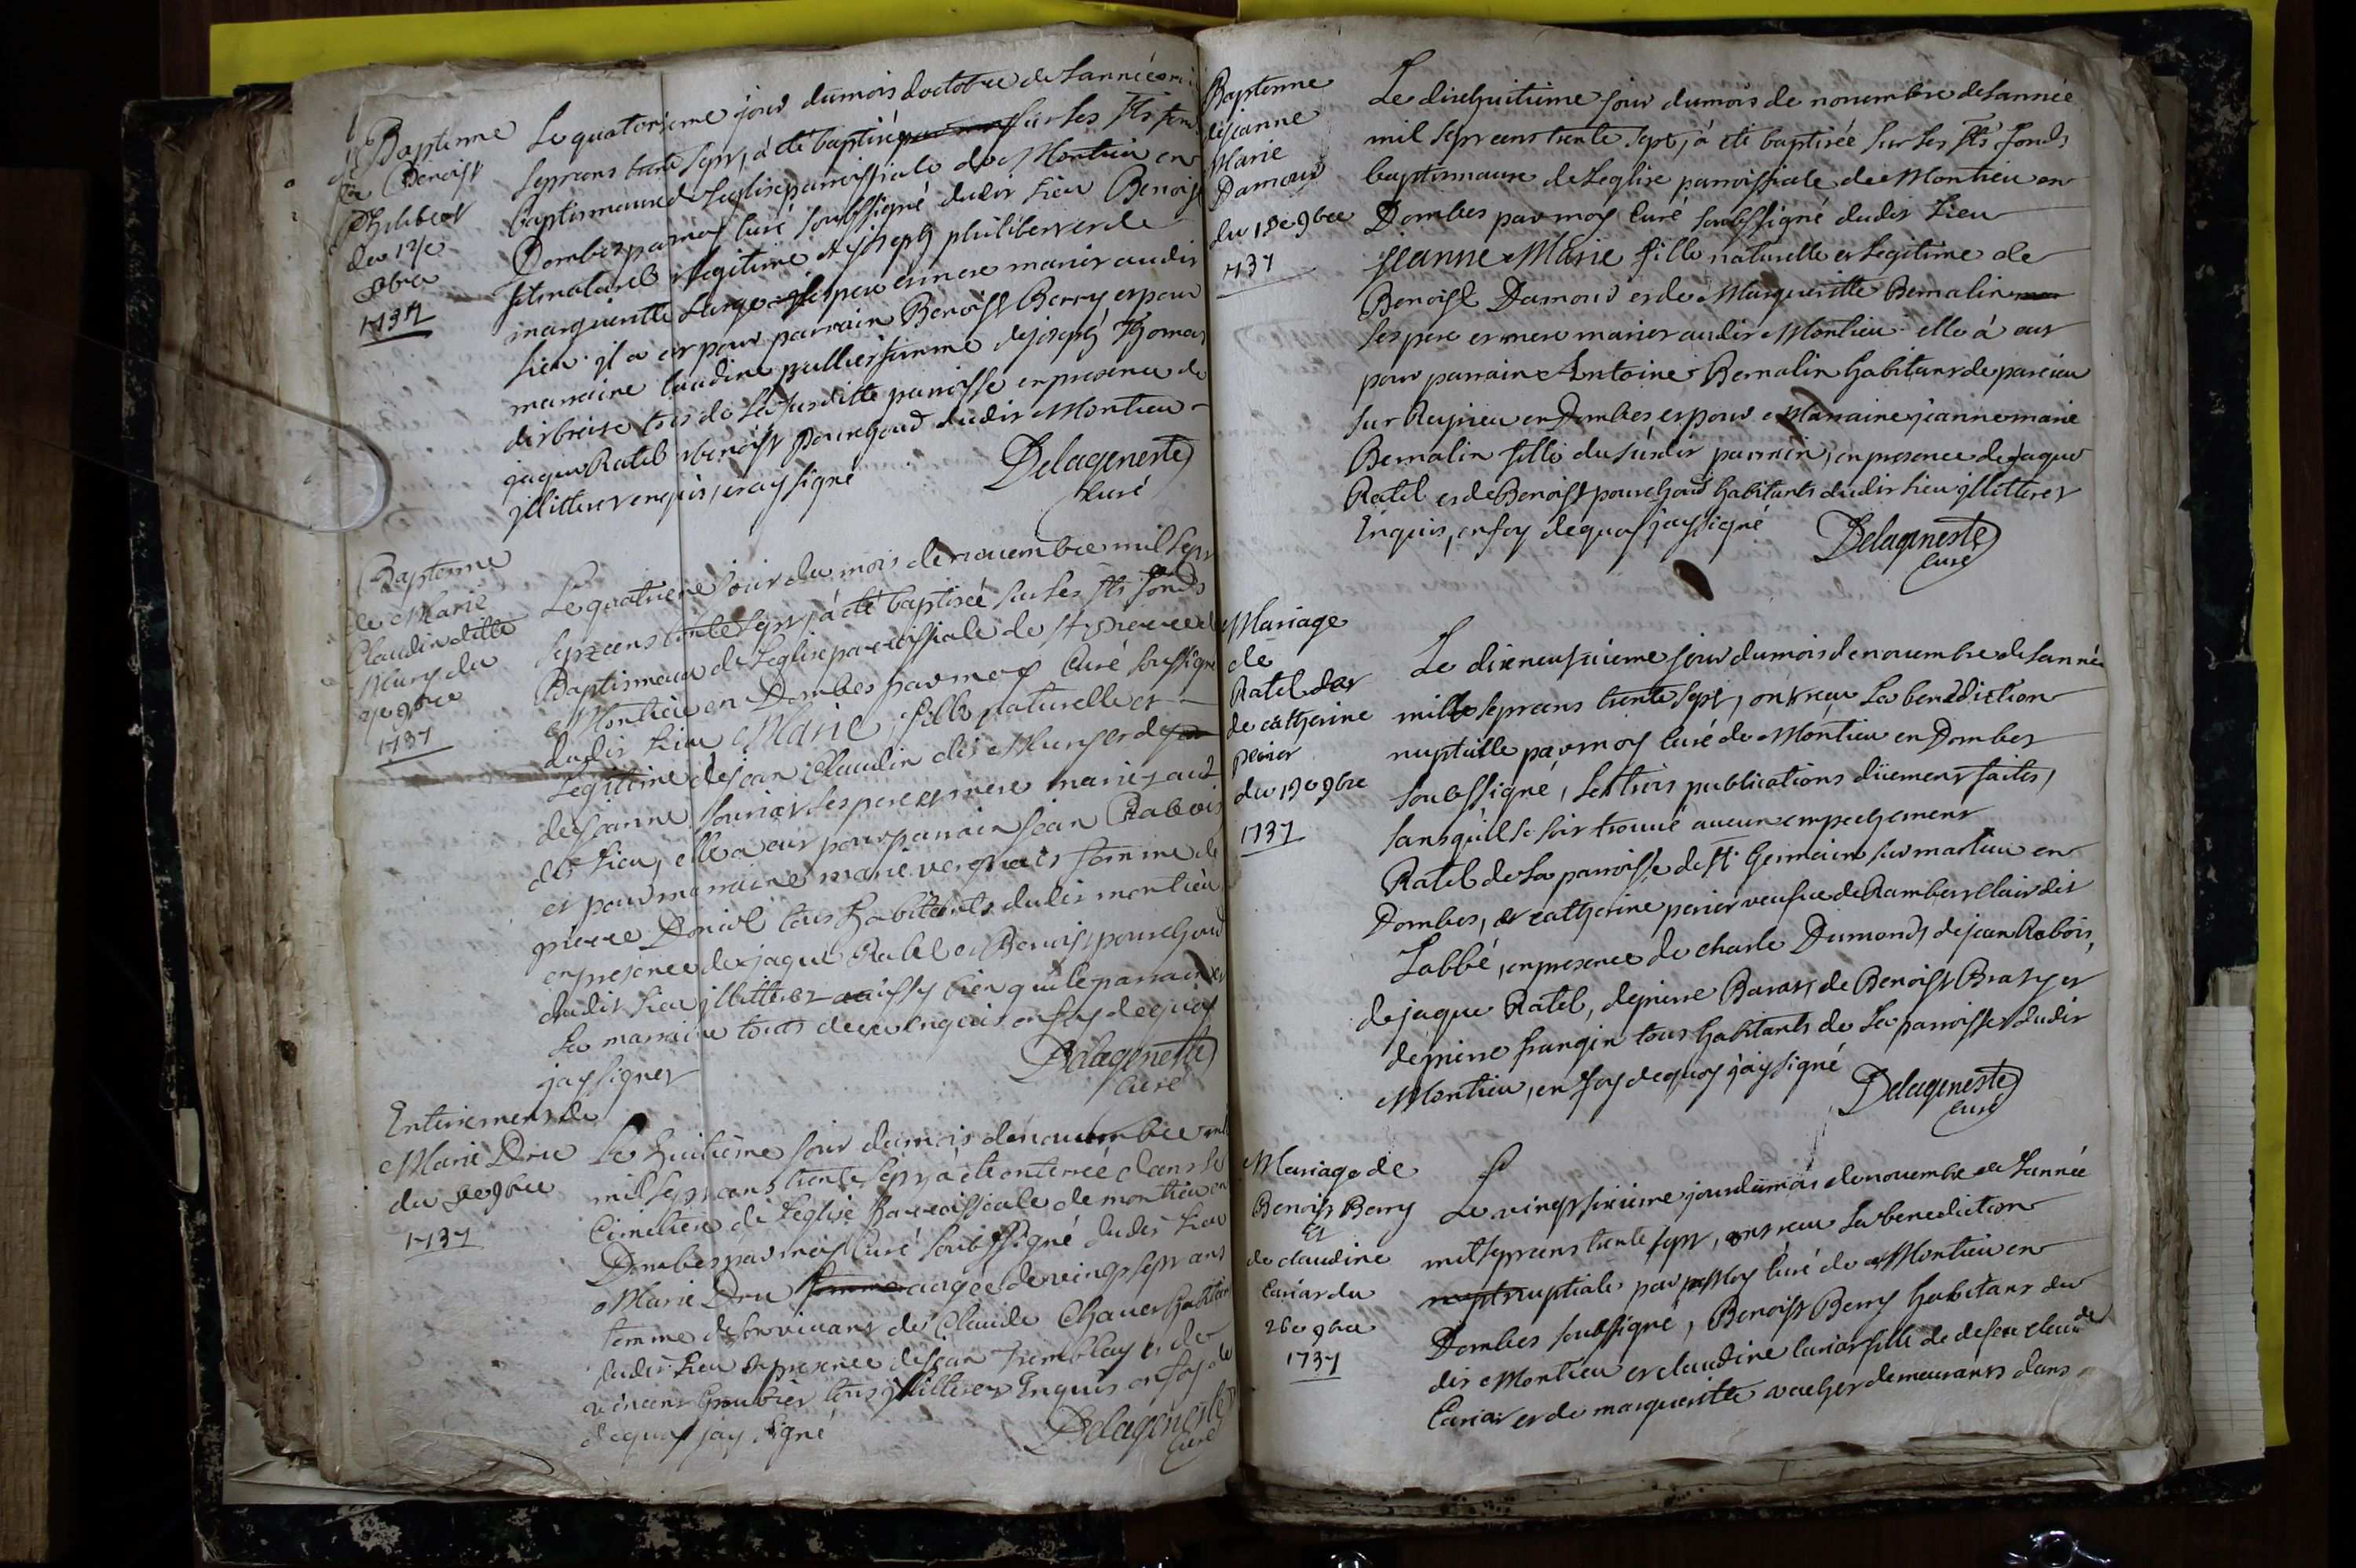 Baptême
de Benoist
Philibert
du 14e
8bre
1737
Le quatorsieme jour dumois doctobre de Lannée mil
septcens trente sept, à été baptisé par moy sur Les sts fonds
baptismeaux de Leglise parroissiale de Montieu en
Dombes par moy Curé soubssigné dudit Lieu Benoist
fils naturel et legitime de joseph philibert et de
marguerite Large ses pere et mere mariés audit
Lieu il a eu pour parrain Benoist Berry et pour
marraine Claudine rullier femme de joseph Thomas
dit brise tous de La susditte parroisse en presence de
jaque Ratel et benoist Pourchoud dudit Montieu
illitteres enquis, et ay signé
Delageneste
Curé
Baptême
de Marie
Claudin ditte
Muny du
4e 9bre
1737
Le quatrieme jour du mois de nouembre mil sept
septcens trente sept, à été baptisée sur Les sts fonds
Baptismeaux de Leglise parroissiale de st pierre de
Montieu en Dombes par moy Curé soussigné
dudit Lieu Marie, fille naturelle et
Legitime de jean Claudin dit Muny et de
de jeanne ses pere et mere mariez aud
dit Lieu, elle a eut pour parrain jean Rabois
et pour marraine marie femme de
pierre Doriol tous habitants dudit montieu
en presence de jaque Ratel et Benoist pourchoud
dudit Lieu illitteres aussy bien que le parrain et
La marraine touts deux enquis en foy de quoy
jay signer
Delageneste
Curé
Enterrement de
Marie Dru
du 8e 9bre
1737
Le huitième jour dumois denouembre mil
mil septcens trente sept à été enterrée dans Le
Cimetiere de Leglise Parroissiale de montieu en
Dombes par moy Curé soubssigné dudit Lieu
Marie Dru femme aagée de vingt sept ans
femme de son vivant de Claude Chauet habitant
dudit Lieu en presence de jean Tremblay et de
vincent Groubier tous illitteres Enquis en foy de
de quoy jay signé
Delageneste
Curé
Baptême
de jeanne
Marie
Damour
du 18e 9bre
1737
Le dixhuitieme jour dumois de nouembre de Lannée
mil septcens trente sept, à été baptisée sur Les sts fonds
baptismaux de Leglise parroissiale de Montieu en
Dombes par moy Curé soubssigné dudit Lieu
jeanne Marie fille naturelle et Legitime de
Benoist Damour et de Marguerite Bernalin
ses pere et mere mariez audit Montieu elle à eut
pour parrain Antoine Bernalin habitant de parcieu
sur Reyrieu en Dombes et pour Marraine jeanne marie
Bernalin fille du susdit parrain, en presence de jaque
Ratel et de Benoist pourchoud habitants dudit Lieu illitteres
Enquis, en foy de quoy jay signé
Delageneste
Curé
Mariage
de
Ratel et
de catherine
perier
du 19e 9bre
1737
Le dixneufuieme jour dumois denouembre de Lannée
mille septcens trente sept, ont reçu La benediction
nuptialle par moy Curé de Montieu en Dombes
soubssigné, les trois publications düement faites,
sans qu'il se soit trouvé aucun empechement
Ratel de La parroisse de st Germain sur marlieu en
Dombes, et catherine perier veufue de Rambert Clair dit
Labbé, en presence de charle Dumond, de jean Rabois,
de jaque Ratel, de pierre Barat, de Benoist Brazy et
de pierre frangin tous habitants de La parroisse dudit
Montieu, en foy de quoy j'ay signé
Delageneste
Curé
Mariage de
Benoist Berry
Et
de claudine
Cariat du
26e 9bre
1737
Le vingt sixieme jour dumois de nouembre de Lannée
mil septcens trente sept, ont reçu La benediction
nupt nuptiale par Moy Curé de Montieu en
Dombes soubssigné, Benoist Berry habitant du
dit Montieu et claudine Cariat fille de defeu claude
Cariat et de marguerite vacher demeurants dans